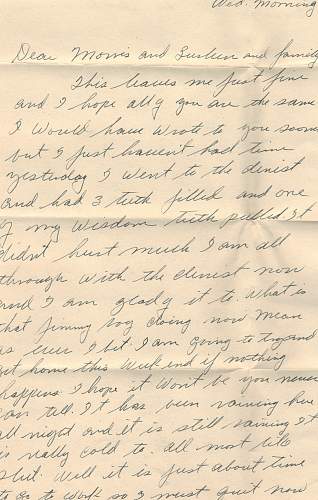 Wed. Morning
Dear Morris and and family
This leaves me just fine
and I hope all y you are the same
I would have wrote to you sooner
but I just haven't had time
yesterday I went to the dinist
and had 3 teeth filled and one
of my wisdom teeth pulled. It
didn't hurt much I am all
through with the dinest now
and I am glad y it to. What is
that jimmy boy doing now mean
as ever I bet. I am going to try and
get home this week end if nothing
happens. I hope it won't be you never
can tell. It has been raining here
all night and it is still raining. It
is really cold to. all most like
Well it is just about time
to go to work so I must quit now